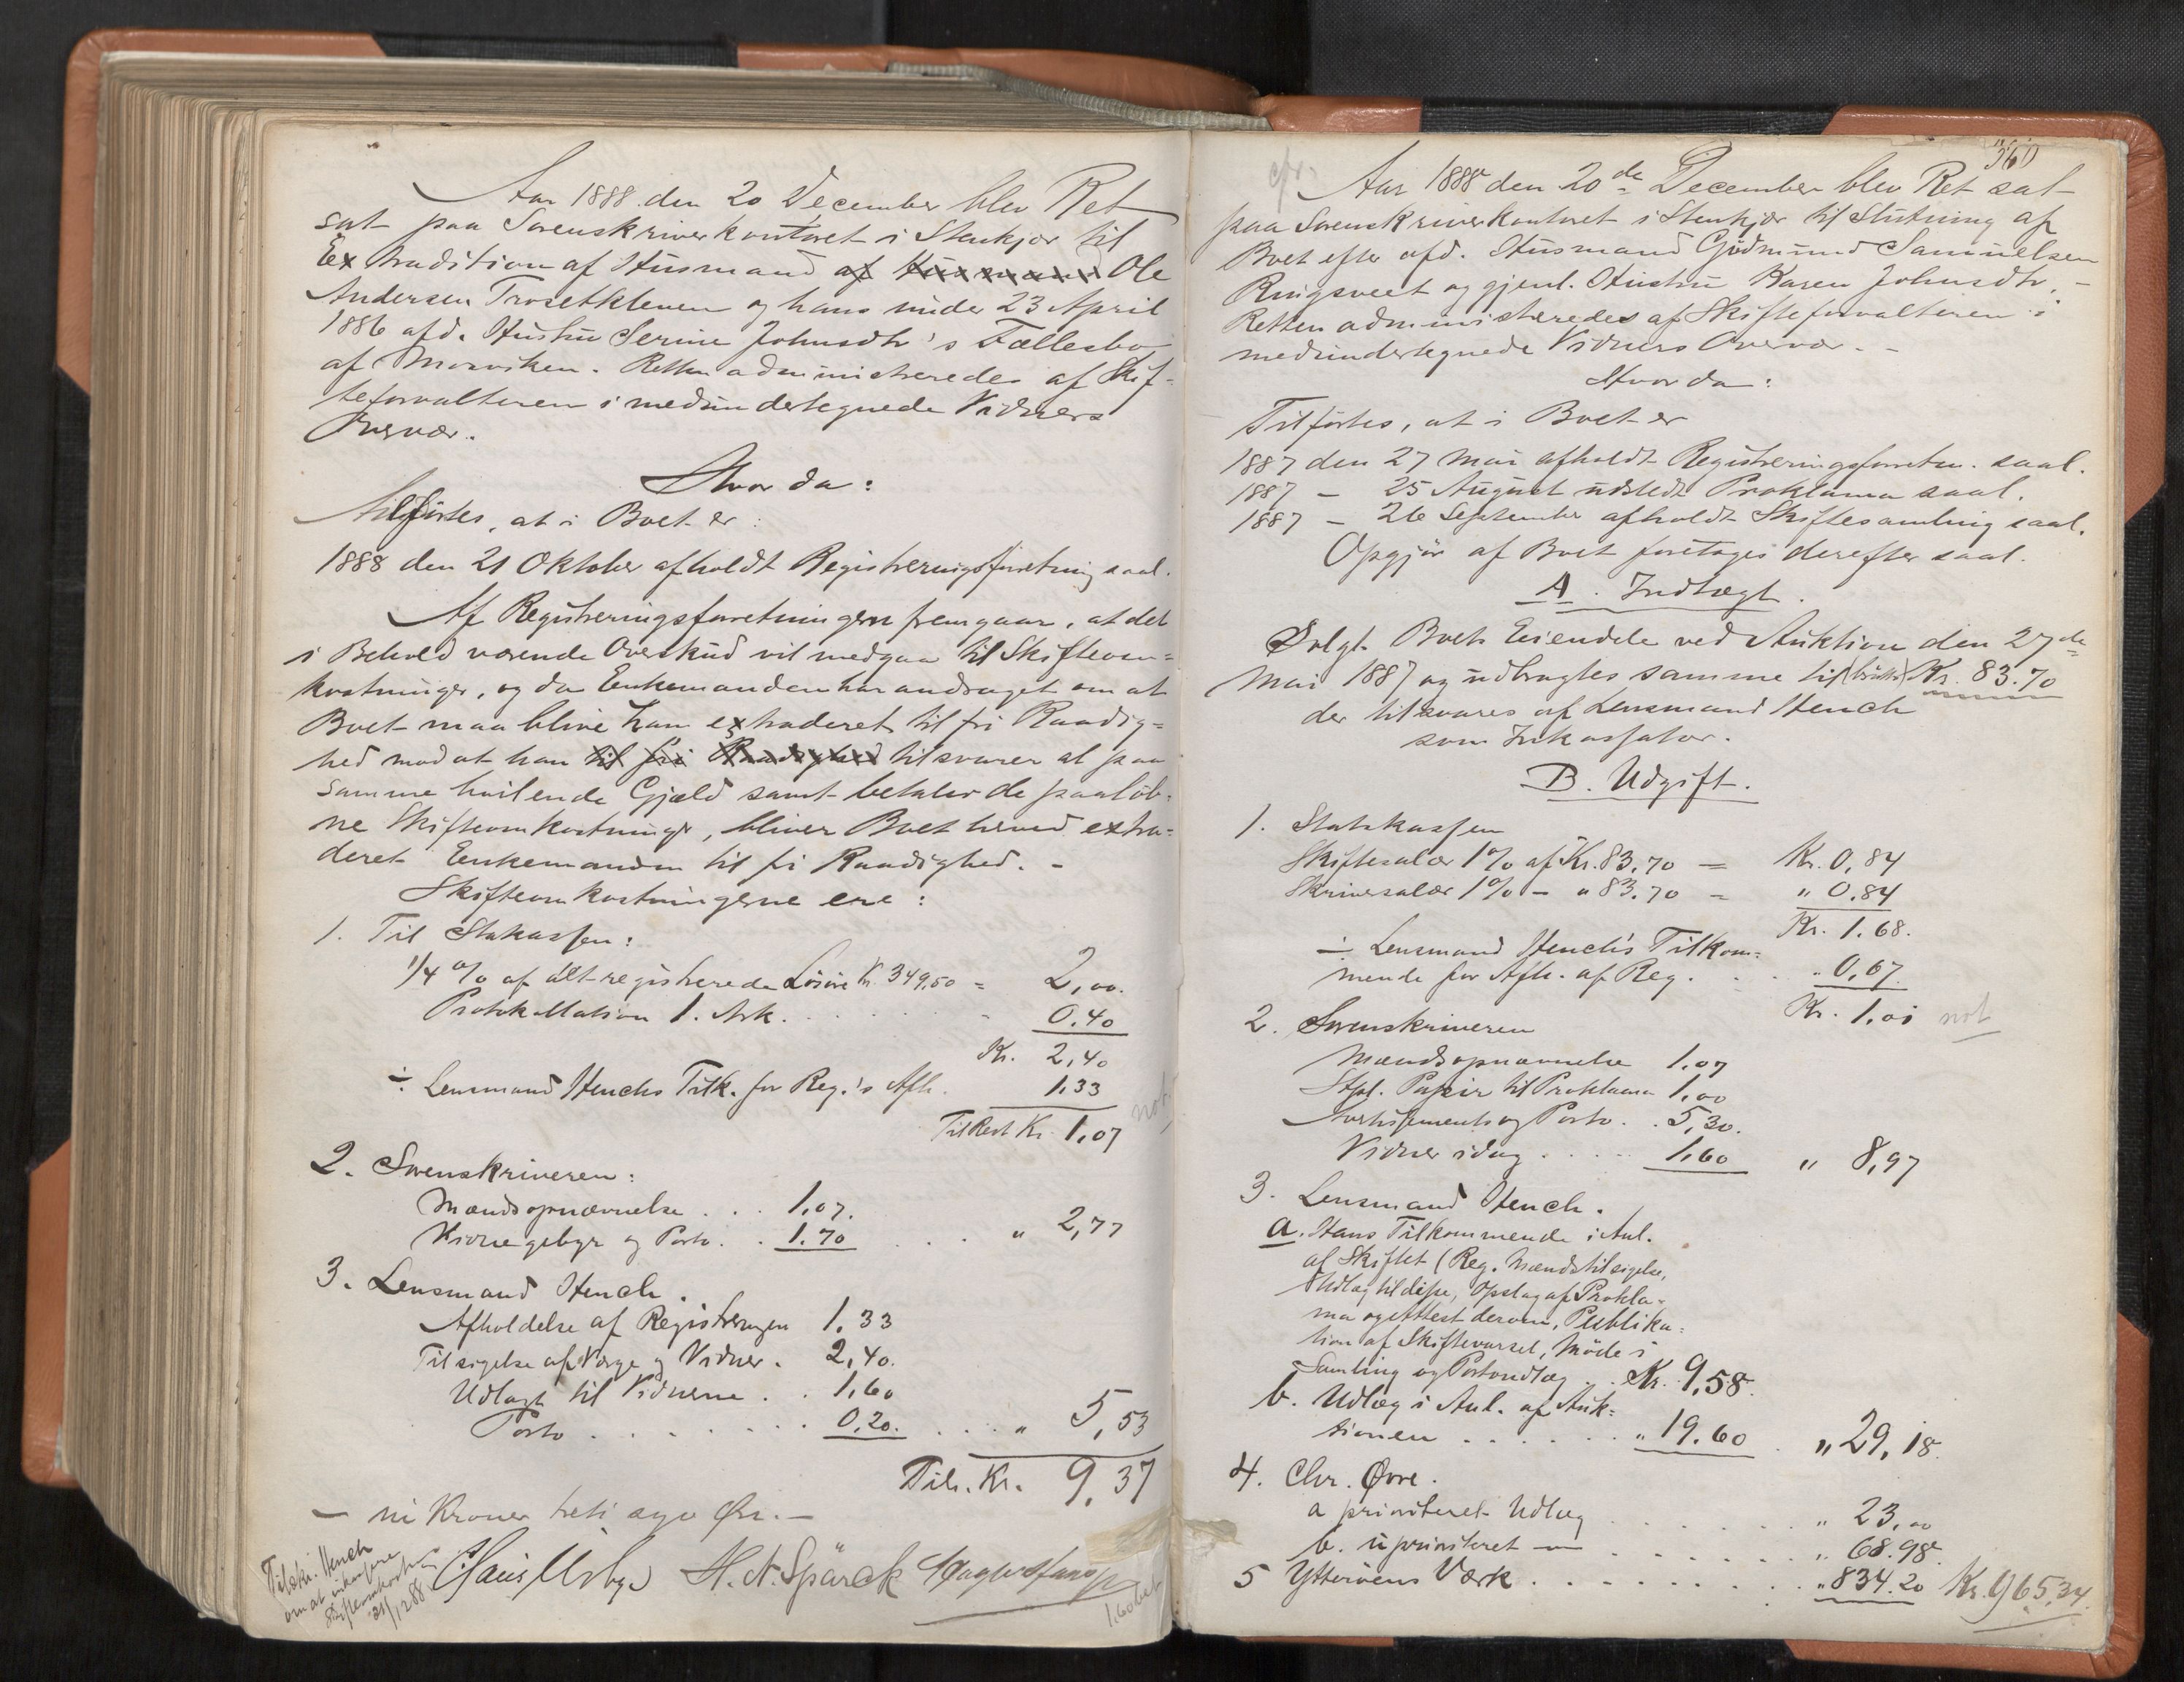 Aar 1888 den 20 December blev Ret
sat paa Sorenskriverkontoret i Stenkjær til
Extradition af Husmand af Husmand Ole
Andersen Trosetkleven og hans under 23 April
1886 afd. Hustru Serine Johnsdtr's Fællesbo
af Mosviken. Retten administreredes af Skif-
teforvalteren i medundertegnede Vidners
Overvær.
Hvor da:
Tilførtes, at i Boet er:
1888 den 21 Oktober afholdt Registreringsforretning saal.
Af Registreringsforretningen fremgaar, at det
i Behold værende Overskud vil medgaa til Skifteom=
kostninger, og da Enkemanden har andraget om at
Boet maa blive ham extraderet til fri Raadig=
hed mod at han til fri Raadighed tilsvarer al paa
samme hvilende Gjæld samt betaler de paaløb=
ne Skifteomkostninger, bliver Boet herved extra=
deret Enkemanden til fri Raadighed. -
Skifteomkostningerne ere:
1. Til Statskassen:
1/4 % af alt registrerede Løsøre Kr 349,50 = 2,00.
Protokollation 1. Ark. 0.40
Kr. 2,40
÷ Lensmand Henchs Tilk. for Reg.'s Afh. 1.33
Til Rest Kr. 1,07 not
2. Sorenskriveren:
Mændsopnævnelse . . . 1,07.
Vidnegebyr og Porto . . 1.70 . . . " 2,77
3. Lensmand Hench.
Afholdelse af Registreringen 1.33
Tilsigelse af Værge og Vidner. 2,40.
Udlagt til Vidnerne . . 1,60
Porto . . . . . . . 0,20. . . . " 5,53
Tils. Kr. 9,37
— ni Kroner treti syv Øre. —
Tilskr. Hench
om at inkassere
Skifteomkostn.
21/12 88
H. N. Spärck
1.60 bet
cfr. 360
Aar 1888 den 20de December blev Ret sat
paa Sorenskriverkontoret i Stenkjær til Slutning af
Boet efter afd. Husmand Gudmund Samuelsen
Ringsveet og gjenl. Hustru Karen Johnsdtr. -
Retten administreredes af Skifteforvalteren i
medundertegnede Vidners Overvær. -
Hvor da:
Tilførtes, at i Boet er
1887 den 27 Mai afholdt Registreringsforretn. saal.
1887 - 25 August udstedt Proklama saal.
1887 - 26 September afholdt Skiftesamling saal.
Opgjør af Boet foretoges derefter saal.
A. Indtægt.
Solgt Boets Eiendele ved Auktion den 27de
Mai 1887 og udbragtes samme til (brutto) Kr. 83.70
der tilsvares af Lensmand Hench
som Inkassator.
B. Udgift.
1. Statskassen
Skiftesalær 1% af Kr. 83.70 = Kr. 0,84
Skriversalær 1% - " 83.70 = " 0.84
Kr. 1.68.
÷ Lensmand Hench's Tilkom=
mende for Afh. af Reg. . . " 0,67.
Kr. 1,01 not
2. Sorenskriveren
Mændsopnævnelse 1.07
Stpl. Papir til Proklama 1,00
Avertissements og Porto . . 5,30.
Vidner idag . . . . 1,60 " 8,97
3. Lensmand Hench.
a. Hans Tilkommende i Anl.
af Skiftet (Reg. Mændstilsigelse,
Udlæg til disse, Opslag af Prokla=
ma og Attest derom, Publika=
tion af Skiftevarsel, Møde i
Samling og Portoudlæg . . Kr. 9,58.
b. Udlæg i Anl. af Auk=
tionen . . . . . . " 19.60 . " 29,18.
4. Chr. Øvre.
a prioriteret Udlæg . . . . . . " 23,00
b. uprioriteret — . . . . . . " 68.98.
5 Ytterøens Værk . . . . . . . " 834.20 Kr. 965,34